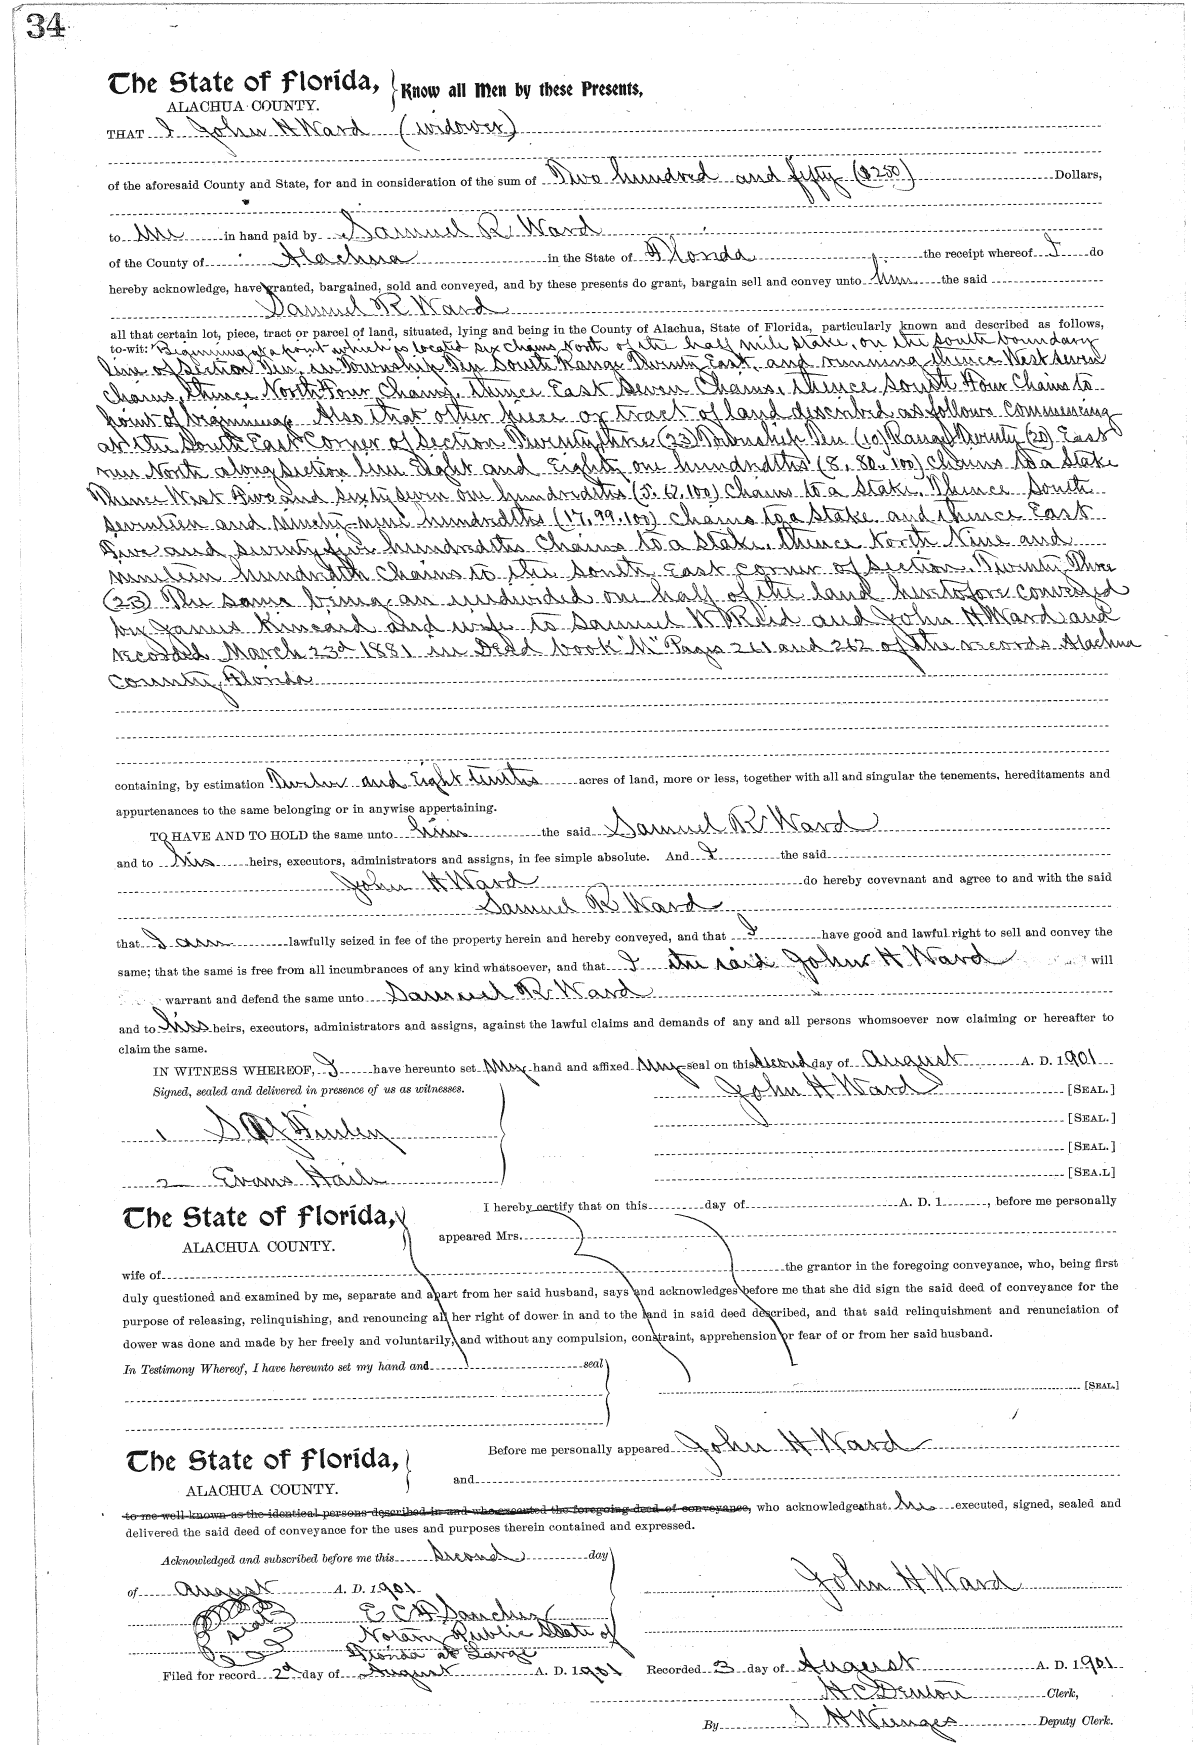 34
The State of Florida, Know all Men by these Presents,
ALACHUA COUNTY.
THAT I John H Ward (widower)
of the aforesaid County and State, for and in consideration of the sum of Two hundred and fifty ($250) Dollars,
to me in hand paid by Samuel R Ward
of the County of Alachua in the State of Florida the receipt whereof I do
hereby acknowledge, have granted, bargained, sold and conveyed, and by these presents do grant, bargain sell and convey unto him the said
Samuel R Ward
all that certain lot, piece, tract or parcel of land, situated, lying and being in the County of Alachua, State of Florida, particularly known and described as follows,
to-wit: Beginning at a point which is located six chains North of the half mile stake, on the south boundary
line of Section Ten, in Township Ten South Range Twenty East, and running thence West seven
chains, thence North Four Chains, thence East Seven Chains, thence South Four Chains to
point of beginning. Also that other piece or tract of land described as follows Commencing
at the South East Corner of Section Twenty three (23) Township Ten (10) Range Twenty (20) East
run North along section line Eight and Eighty one hundredths (8, 80.100) Chains to a Stake
Thence West Five and sixty seven one hundredths (5.67.100) Chains to a Stake. Thence South
seventeen and ninety-nine hundredths (17,99.100) chains to a Stake and thence East
Five and seventy five hundredths Chains to a Stake, thence North Nine and
nineteen hundredth Chains to the South East corner of Section Twenty Three
(23) The same being an undivided one half of the land heretofore conveyed
by James Kincaid and wife to Samuel W Reid and John H Ward and
recorded March 23d 1881 in Deed book "M" Pages 261 and 262 of the records Alachua
County, Florida
containing, by estimation Twelve and Eight tenths acres of land, more or less, together with all and singular the tenements, hereditaments and
appurtenances to the same belonging or in anywise appertaining.
TO HAVE AND TO HOLD the same unto him the said Samuel R Ward
and to his heirs, executors, administrators and assigns, in fee simple absolute. And I the said
John H Ward do hereby covevnant and agree to and with the said
Samuel R Ward
that I am lawfully seized in fee of the property herein and hereby conveyed, and that I have good and lawful right to sell and convey the
same; that the same is free from all incumbrances of any kind whatsoever, and that I the said John H Ward will
warrant and defend the same unto Samuel R Ward
and to his heirs, executors, administrators and assigns, against the lawful claims and demands of any and all persons whomsoever now claiming or hereafter to
claim the same.
IN WITNESS WHEREOF, I have hereunto set my hand and affixed my seal on this second day of August A. D. 1901
Signed, sealed and delivered in presence of us as witnesses. John H Ward [SEAL.]
[SEAL.]
1 Finley
[SEAL.]
2 Evans Haile [SEA.L]
The State of Florida, I hereby certify that on this day of A. D. 1 , before me personally
ALACHUA COUNTY. appeared Mrs.
wife of the grantor in the foregoing conveyance, who, being first
duly questioned and examined by me, separate and apart from her said husband, says and acknowledges before me that she did sign the said deed of conveyance for the
purpose of releasing, relinquishing, and renouncing all her right of dower in and to the land in said deed described, and that said relinquishment and renunciation of
dower was done and made by her freely and voluntarily, and without any compulsion, constraint, apprehension or fear of or from her said husband.
In Testimony Whereof, I have hereunto set my hand and seal
[SEAL.]
The State of Florida, Before me personally appeared John H Ward
ALACHUA COUNTY. and
to me well known as the identical persons described in and who executed the foregoing deed of conveyance, who acknowledges that he executed, signed, sealed and
delivered the said deed of conveyance for the uses and purposes therein contained and expressed.
Acknowledged and subscribed before me this second day
of August A. D. 1901 John H Ward
seal E C F Sanchez
Notary Public State of
Florida at Large
Filed for record 2d day of August A. D. 1901 Recorded 3 day of August A. D. 1901
H C Denton Clerk,
By S H Wienges Deputy Clerk.